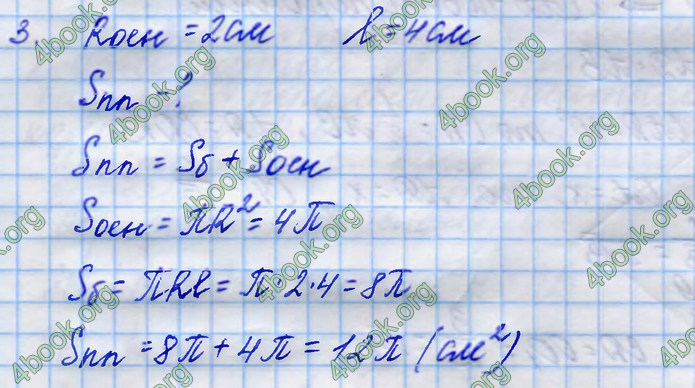 3. Rосн = 2см l = 4см
Sпп - ?
Sпп = Sб + Sосн
Sосн = πR² = 4π
Sб = πRl = π·2·4 = 8π
Sпп = 8π + 4π = 12π (см²)
4book.org
4book.org
4book.org
4book.org
4book.org
4book.org
4book.org
4book.org
4book.org
4book.org
4book.org